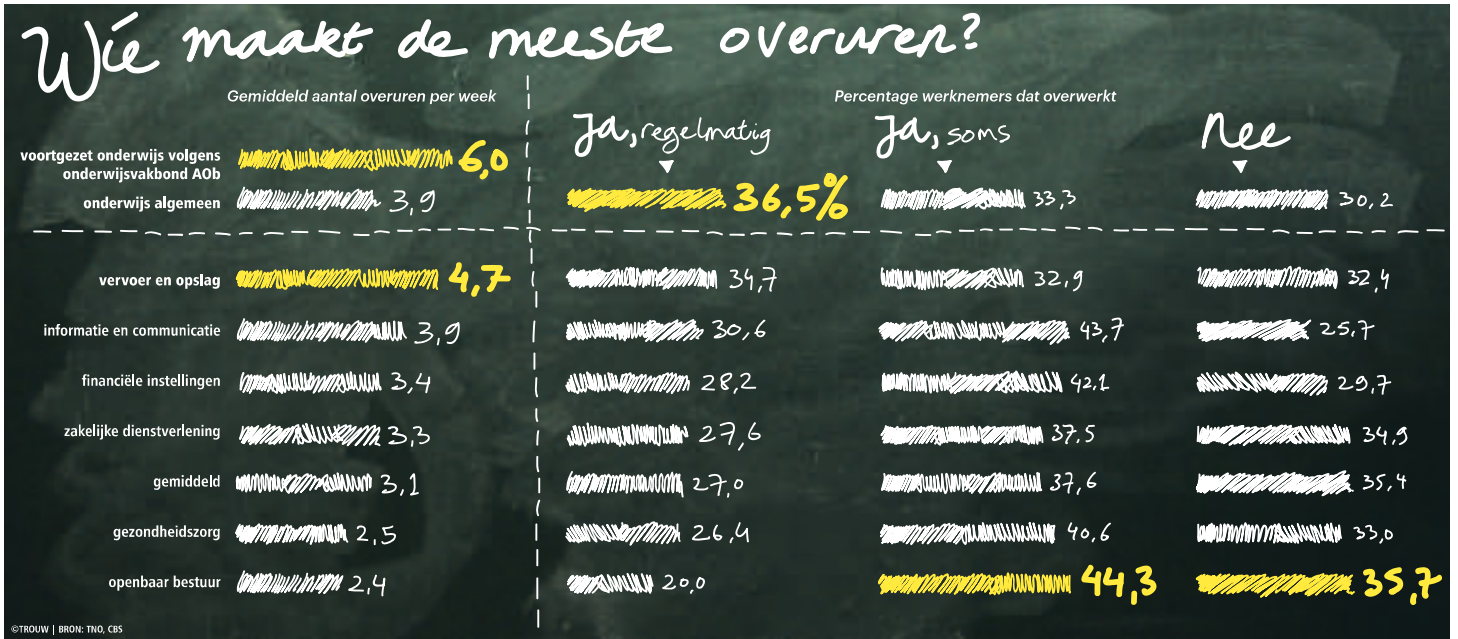 Wie maakt de meeste overuren?
Gemiddeld aantal overuren per week
Percentage werknemers dat overwerkt
Ja, regelmatig
Ja, soms
Nee
voortgezet onderwijs volgens
onderwijsvakbond AOb 6,0
onderwijs algemeen 3,9 36,5% 33,3 30,2
vervoer en opslag 4,7 34,7 32,9 32,4
informatie en communicatie 3,9 30,6 43,7 25,7
financiële instellingen 3,4 28,2 42,1 29,7
zakelijke dienstverlening 3,3 27,6 37,5 34,9
gemiddeld 3,1 27,0 37,6 35,4
gezondheidszorg 2,5 26,4 40,6 33,0
openbaar bestuur 2,4 20,0 44,3 35,7
©TROUW | BRON: TNO, CBS